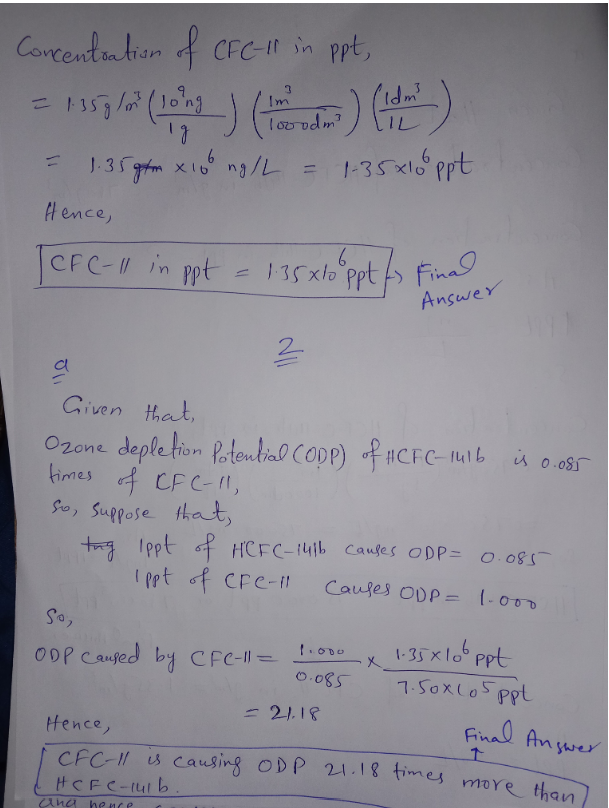 Concentration of CFC-11 in ppt,
= 1.35g/m³ (10⁹ng / 1g) (1m³ / 1000dm³) (1dm³ / 1L)
= 1.35 ×10⁶ ng/L = 1.35×10⁶ ppt
Hence,
CFC-11 in ppt = 1.35×10⁶ ppt → Final Answer
2
a
Given that,
Ozone depletion Potential (ODP) of HCFC-141b is 0.085
times of CFC-11,
So, Suppose that,
1ppt of HCFC-141b causes ODP = 0.085
1ppt of CFC-11 Causes ODP = 1.000
So,
ODP Caused by CFC-11 = 1.000 / 0.085 × 1.35×10⁶ ppt / 7.50×10⁵ ppt
= 21.18
Hence,
Final Answer
↑
CFC-11 is causing ODP 21.18 times more than
HCFC-141b.
and hence